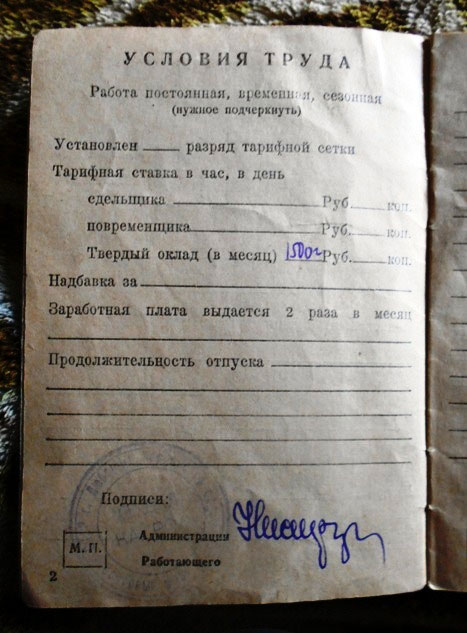 УСЛОВИЯ ТРУДА
Работа постоянная, временная, сезонная
(нужное подчеркнуть)
Установлен ____ разряд тарифной сетки
Тарифная ставка в час, в день
сдельщика ____ Руб. ____ коп.
повременщика ____ Руб. ____ коп.
Твердый оклад (в месяц) Руб. ____ коп.
Надбавка за ____
Заработная плата выдается 2 раза в месяц
Продолжительность отпуска ____
Подписи:
Администрация
М. П.
Работающего
2